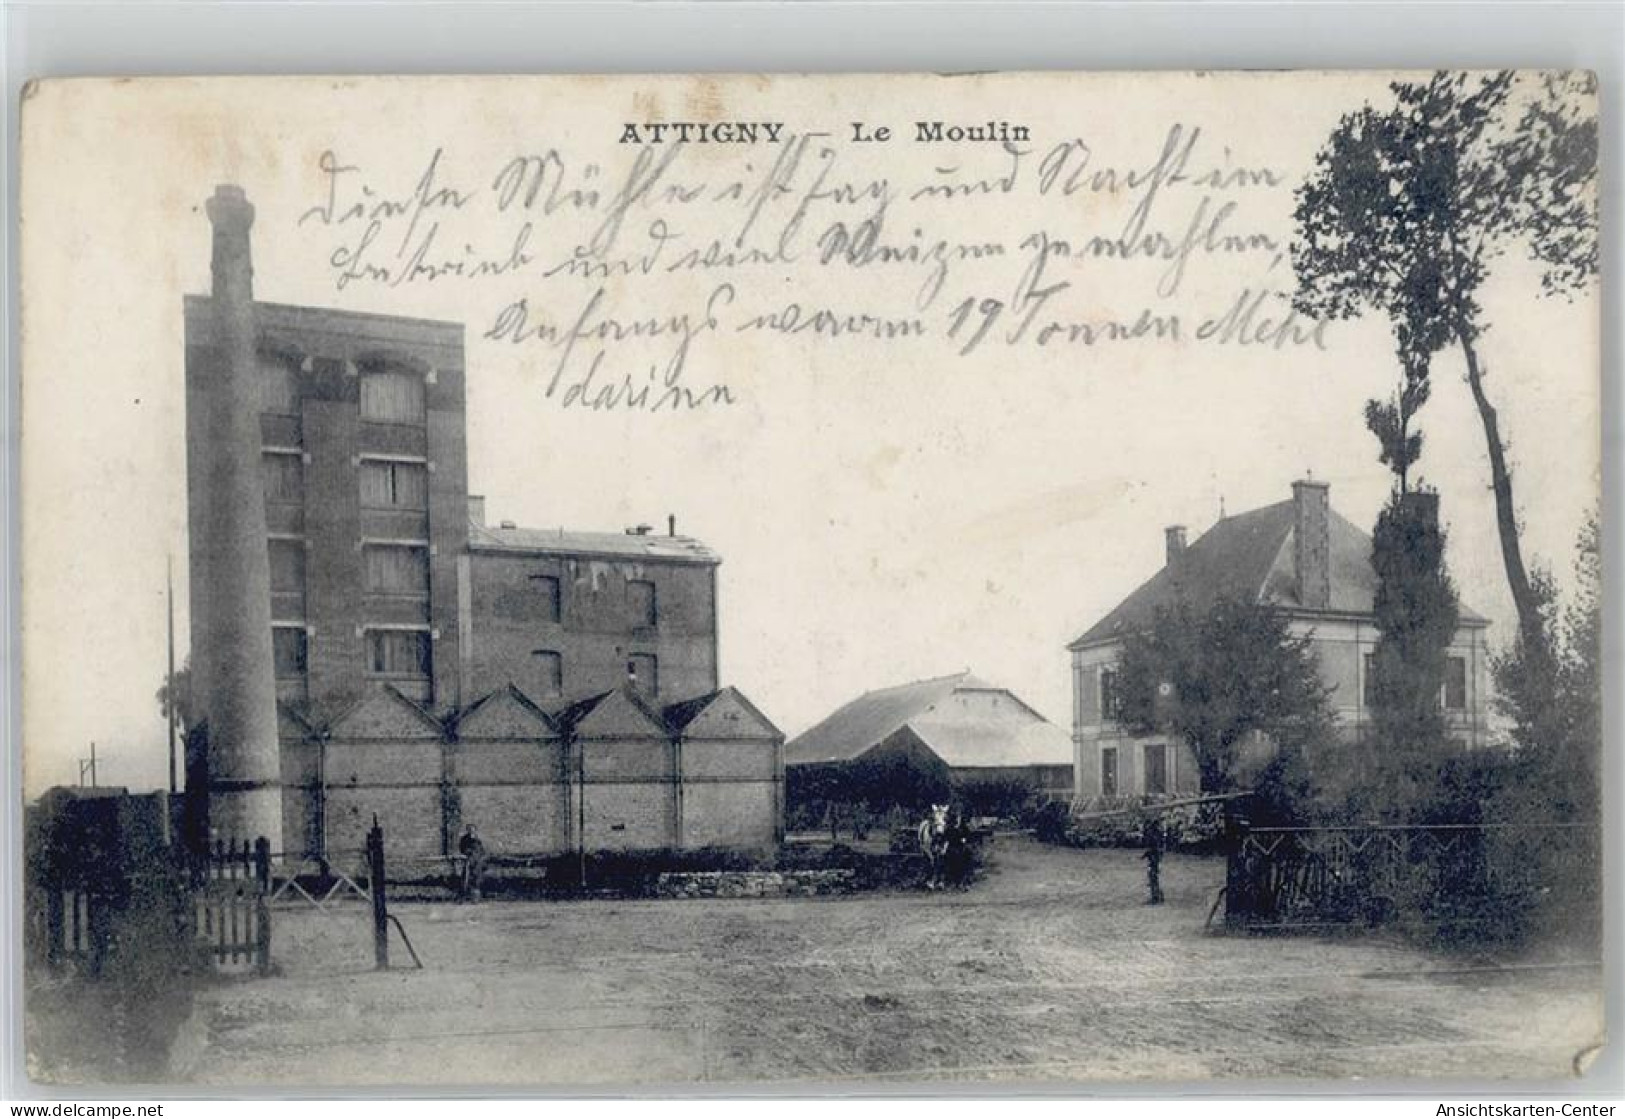 ATTIGNY — Le Moulin
Diese Mühle ist Tag und Nacht im
betrieb und viel Weizen gemahlen,
Anfangs waren 19 Tonnen Mehl
darinn
www.delcampe.net
Ansichtskarten-Center